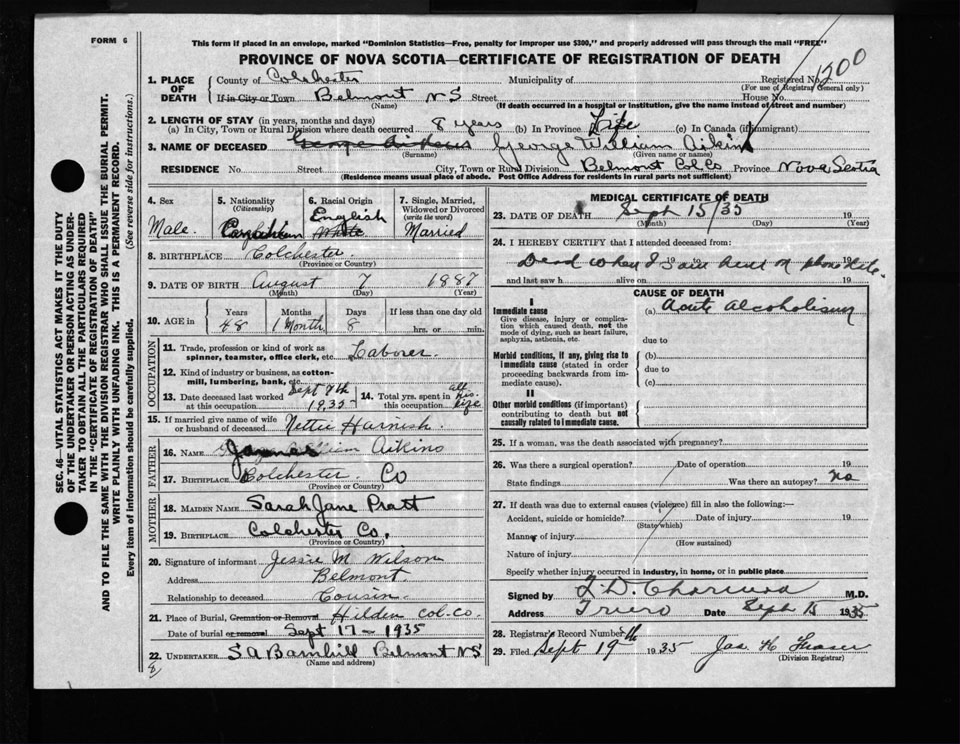 FORM 6
This form if placed in an envelope, marked "Dominion Statistics—Free, penalty for improper use $300," and properly addressed will pass through the mail "FREE"
PROVINCE OF NOVA SCOTIA—CERTIFICATE OF REGISTRATION OF DEATH
SEC. 46—VITAL STATISTICS ACT MAKES IT THE DUTY
OF THE UNDERTAKER OR PERSON ACTING AS UNDER-
TAKER TO OBTAIN ALL THE PARTICULARS REQUIRED
IN THE "CERTIFICATE OF REGISTRATION OF DEATH"
AND TO FILE THE SAME WITH THE DIVISION REGISTRAR WHO SHALL ISSUE THE BURIAL PERMIT.
WRITE PLAINLY WITH UNFADING INK. THIS IS A PERMANENT RECORD.
Every item of information should be carefully supplied. (See reverse side for instructions.)
1. PLACE OF DEATH County of Colchester Municipality of Registered No. 1200
(For use of Registrar General only)
If in City or Town Belmont NS Street House No.
(Name) (If death occurred in a hospital or institution, give the name instead of street and number)
2. LENGTH OF STAY (in years, months and days)
(a) In City, Town or Rural Division where death occurred 8 years (b) In Province Life (c) In Canada (if immigrant)
3. NAME OF DECEASED George Aikens George William Aikins
(Surname) (Given name or names)
RESIDENCE No. Street City, Town or Rural Division Belmont Col Co Province Nova Scotia
(Residence means usual place of abode. Post Office Address for residents in rural parts not sufficient)
4. Sex Male.
5. Nationality (Citizenship) Canadian
6. Racial Origin English White
7. Single, Married, Widowed or Divorced (write the word) Married
8. BIRTHPLACE Colchester
(Province or Country)
9. DATE OF BIRTH August 7 1887
(Month) (Day) (Year)
10. AGE in Years 48 Months 1 Month Days 8 If less than one day old
hrs. or min.
OCCUPATION
11. Trade, profession or kind of work as spinner, teamster, office clerk, etc. Laborer.
12. Kind of industry or business, as cotton-mill, lumbering, bank, etc.
13. Date deceased last worked at this occupation Sept 8th 1935-
14. Total yrs. spent in this occupation all his life
15. If married give name of wife or husband of deceased Nettie Harnish.
FATHER
16. NAME James William Aikins
17. BIRTHPLACE Colchester Co
(Province or Country)
MOTHER
18. MAIDEN NAME Sarah Jane Pratt
19. BIRTHPLACE Colchester Co,
(Province or Country)
20. Signature of informant Jessie M Wilson
Address Belmont.
Relationship to deceased Cousin.
21. Place of Burial, Cremation or Removal Hilden col.co.
Date of burial or removal Sept 17- 1935
22. UNDERTAKER S A Barnhill Belmont NS
(Name and address)
MEDICAL CERTIFICATE OF DEATH
23. DATE OF DEATH Sept 15/35 19
(Month) (Day) (Year)
24. I HEREBY CERTIFY that I attended deceased from:
19 to 19
Dead when I saw him
and last saw h alive on 19
CAUSE OF DEATH
I
Immediate cause
Give disease, injury or complication which caused death, not the mode of dying, such as heart failure, asphyxia, asthenia, etc.
(a) Acute Alcoholism
due to
Morbid conditions, if any, giving rise to immediate cause (stated in order proceeding backwards from immediate cause).
(b)
due to
(c)
II
Other morbid conditions (if important) contributing to death but not causally related to immediate cause.
25. If a woman, was the death associated with pregnancy?
26. Was there a surgical operation? Date of operation 19
State findings Was there an autopsy? no
27. If death was due to external causes (violence) fill in also the following:
Accident, suicide or homicide? Date of injury 19
(State which)
Manner of injury
(How sustained)
Nature of injury
Specify whether injury occurred in industry, in home, or in public place
Signed by M.D.
Address Truro Date Sept 15 1935
28. Registrar's Record Number
29. Filed Sept 19th 1935 Jas H Fraser
(Division Registrar)